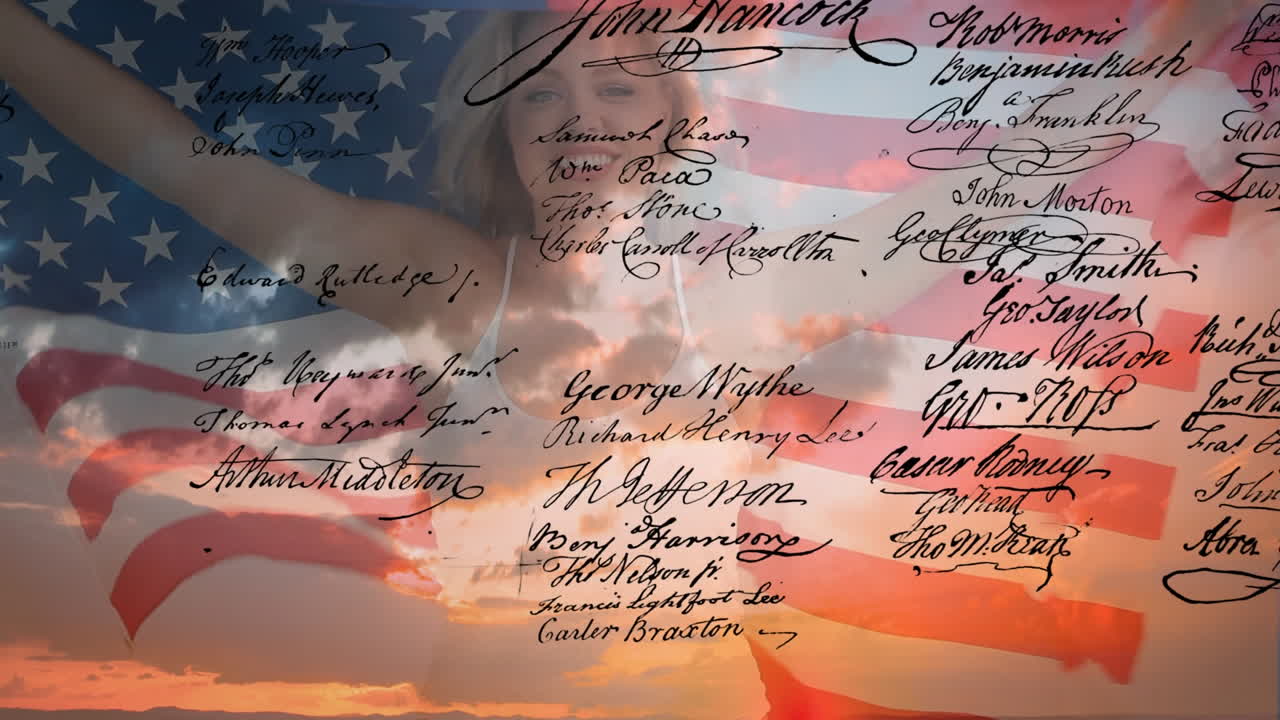 John Hancock
Wm Hooper
Joseph Hewes,
John Penn
Edward Rutledge /.
Thos Heyward Junr.
Thomas Lynch Junr.
Arthur Middleton
Samuel Chase
Wm. Paca
Thos. Stone
Charles Carroll of Carrollton
George Wythe
Richard Henry Lee
Th Jefferson
Benj Harrison
Thos Nelson jr.
Francis Lightfoot Lee
Carter Braxton
Robt Morris
Benjamin Rush
Benj. Franklin
John Morton
Geo Clymer
Jas. Smith.
Geo. Taylor
James Wilson
Geo. Ross
Caesar Rodney
Geo Read
Tho M:Kean
Lew
Rich.
John
Abra